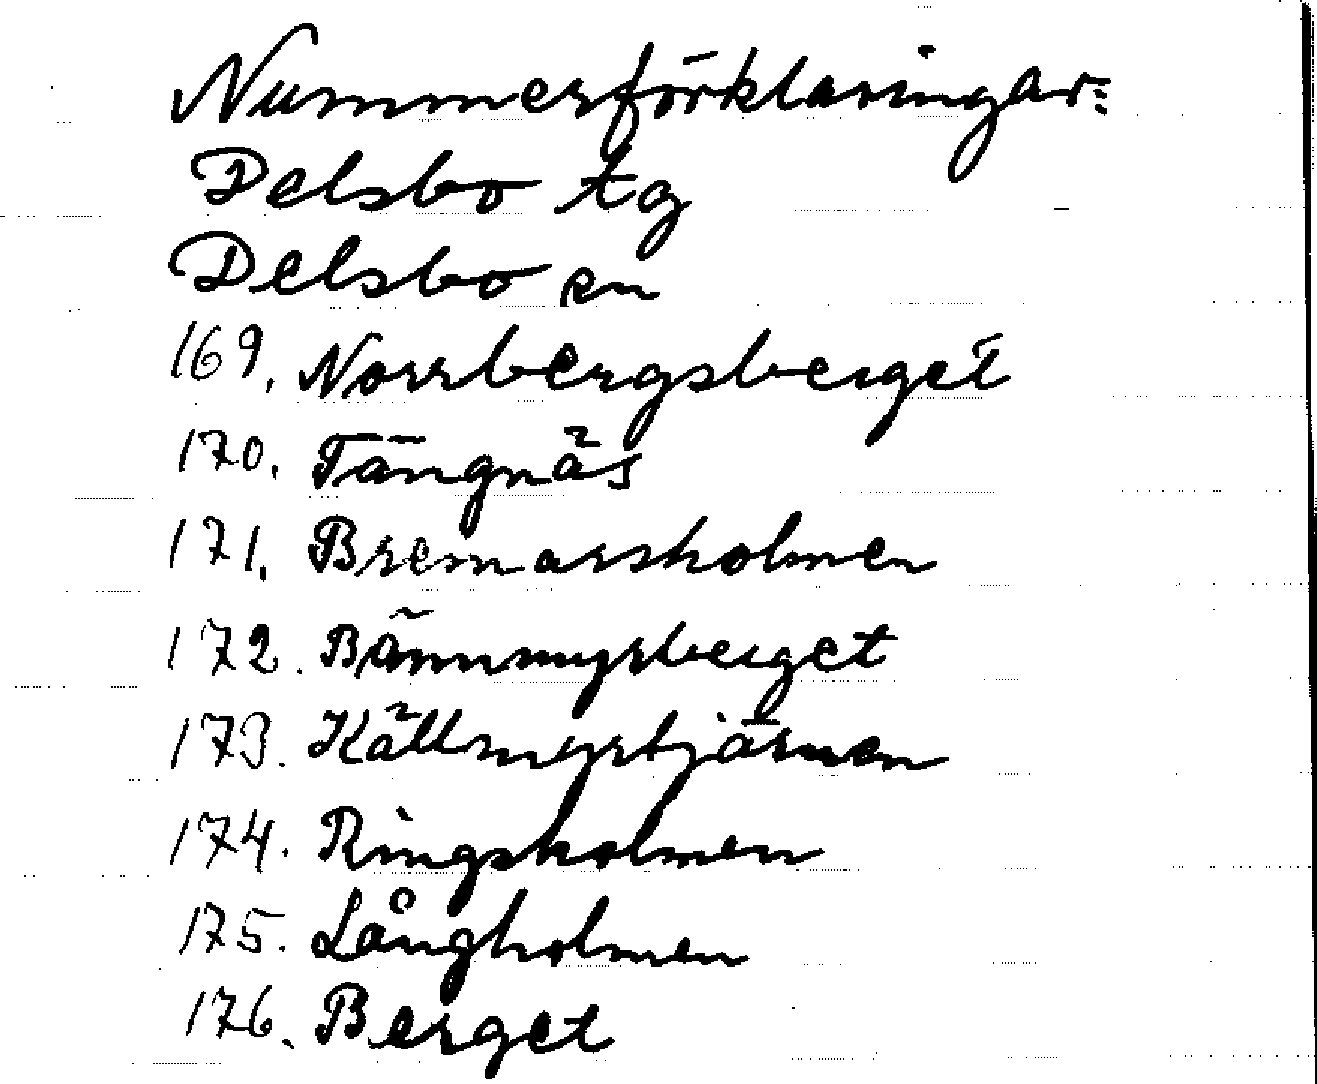 Nummerförklaringar:
Delsbo tg
Delsbo en
169. Norrbergsberget
170. Tängnäs
171. Bremarsholmen
172. Bännmyrberget
173. Källmyrtjärnen
174. Ringsholmen
175. Långholmen
176. Berget